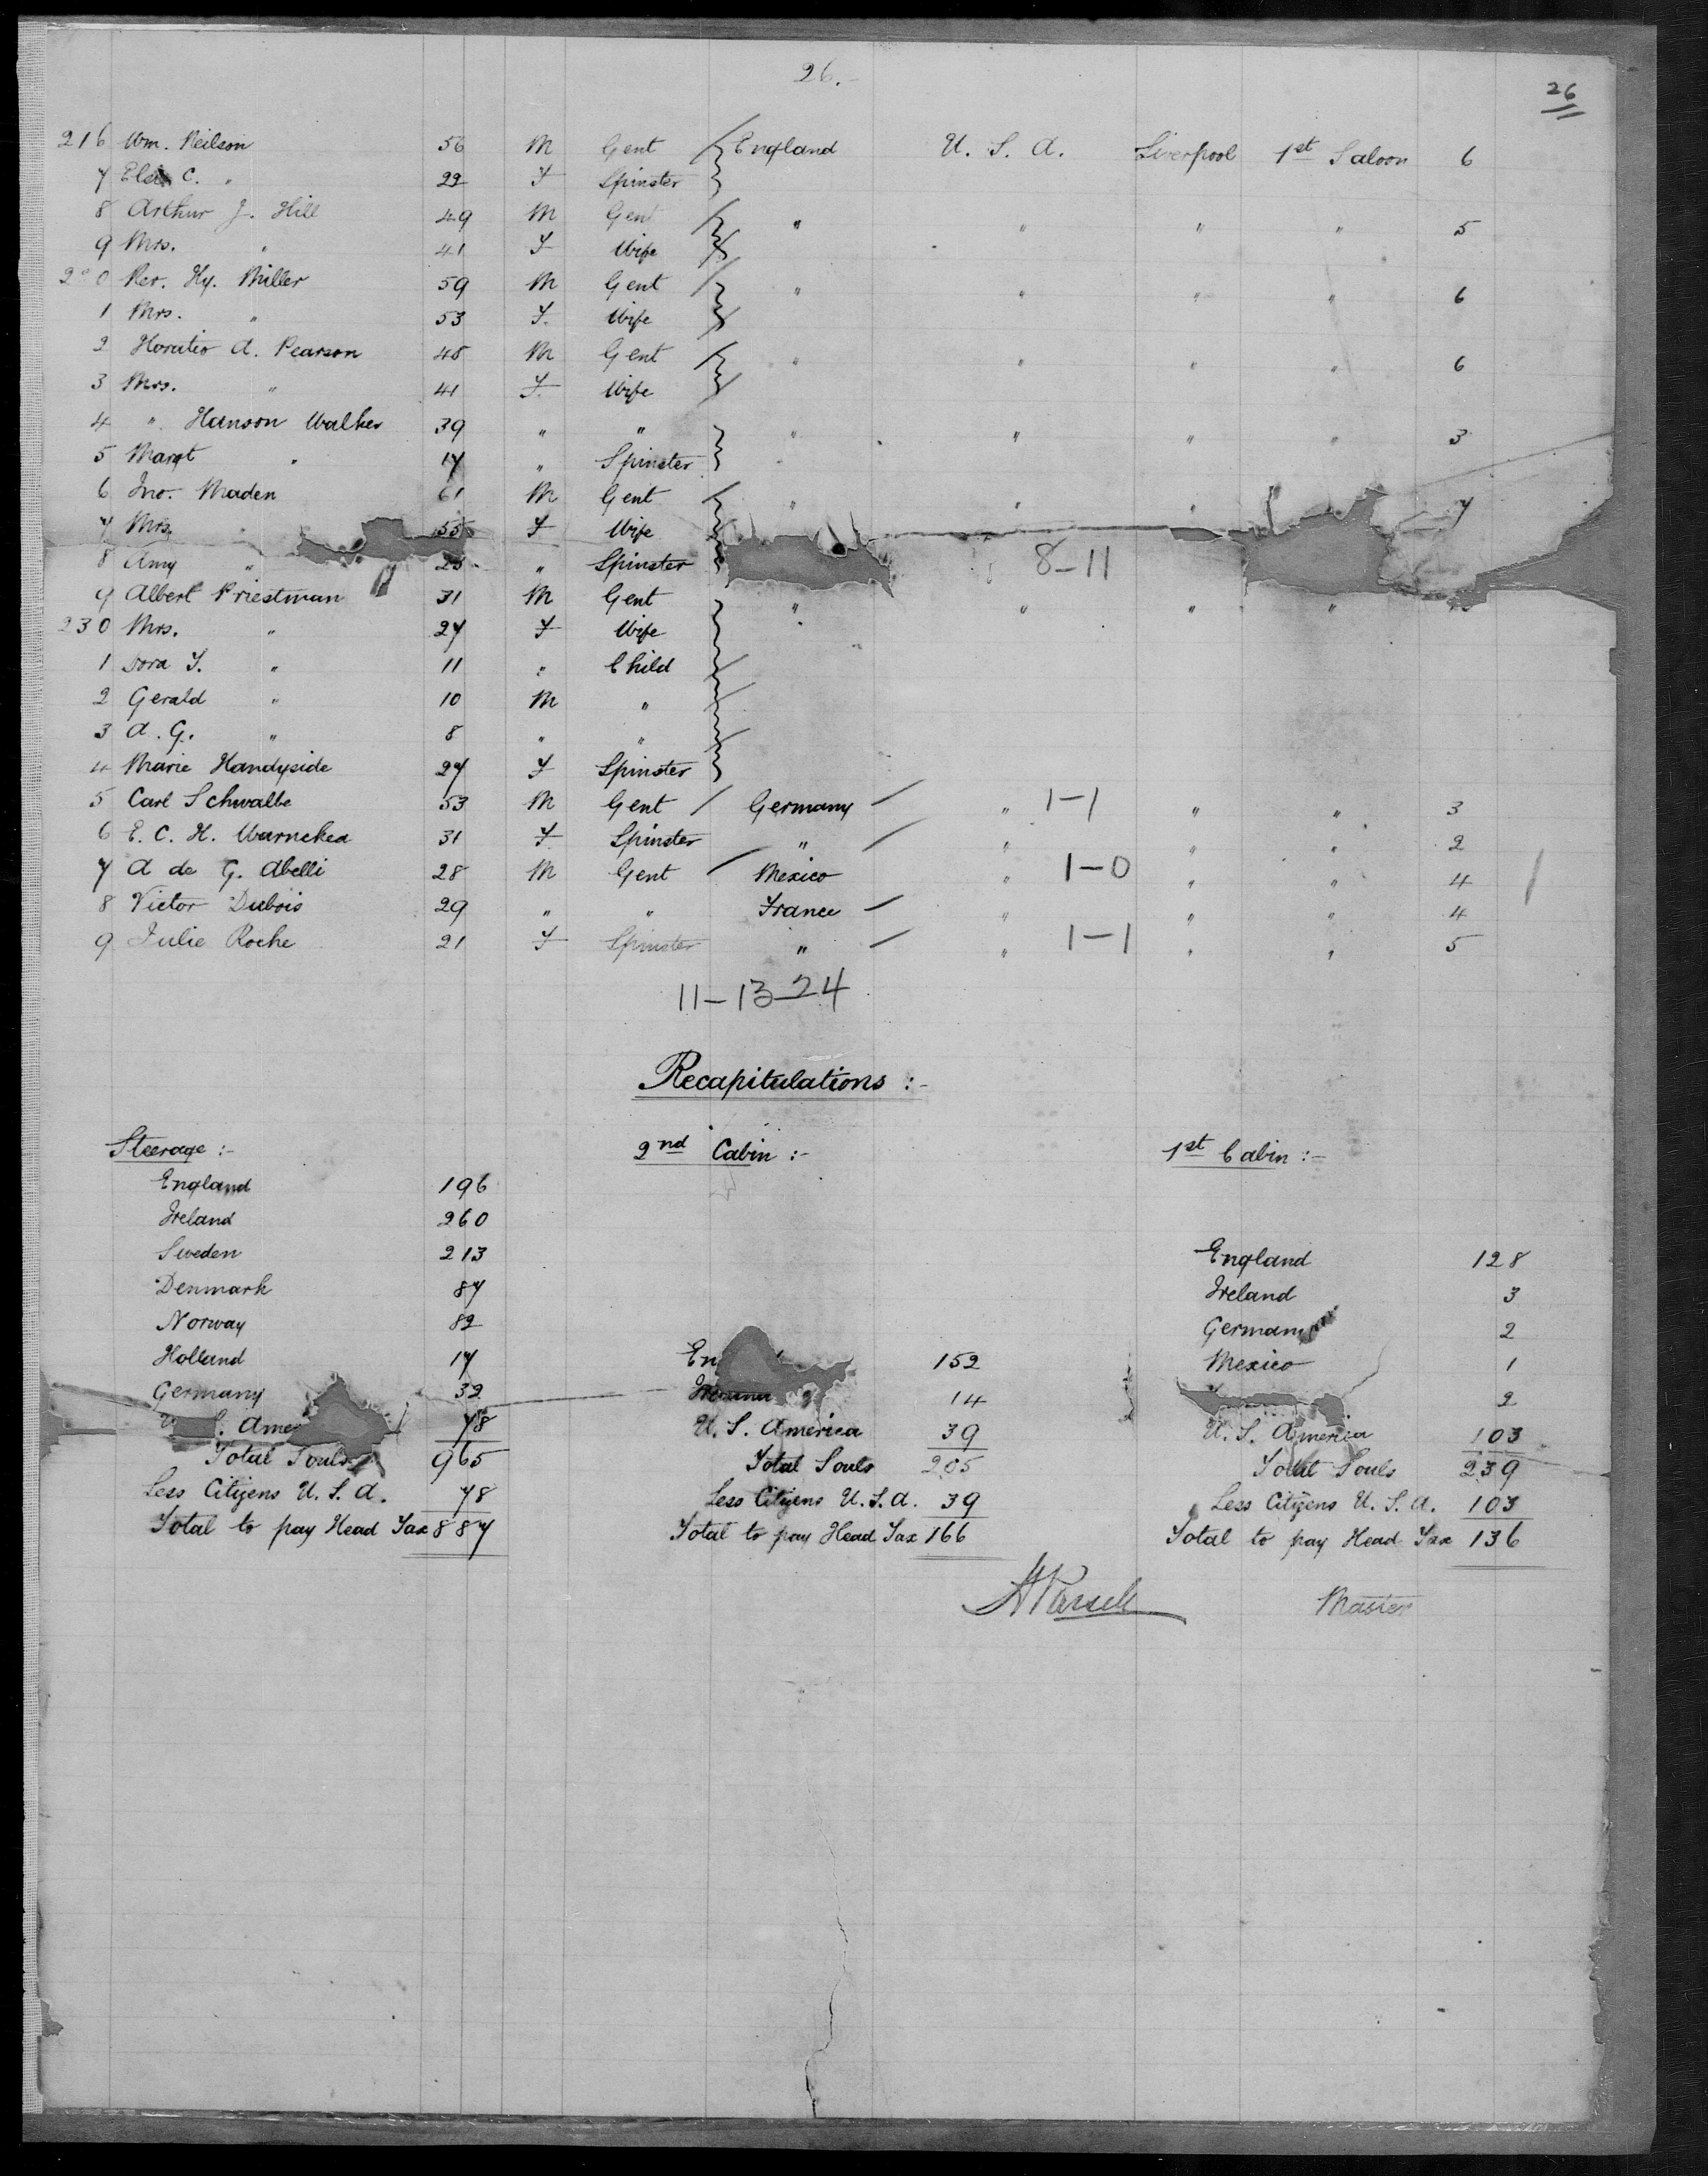 26.
26
216 Wm. Neilson 56 M Gent England U. S. A. Liverpool 1st Saloon 6
7 C. " 22 F Spinster
8 Arthur J. Hill 49 M Gent " " " " 5
9 Mrs. " 41 F Wife
2 0 Rev. Hy. Miller 59 M Gent " " " " 6
1 Mrs. " 53 F. Wife
2 Horatio A. Pearson 48 M Gent " " " " 6
3 Mrs. " 41 F. Wife
4 " Hanson Walker 39 " " " " " " 3
5 Margt " 17 " Spinster
6 Jno. Maden 61 M Gent " " " 7
7 Mrs. " 55 F Wife
8 Amy " 23 " Spinster 8-11
9 Albert Priestman 31 M Gent " " " "
230 Mrs. " 27 F Wife
1 Dora F. " 11 " Child
2 Gerald " 10 M "
3 A. G. " 8 " "
4 Marie Handyside 27 F Spinster
5 Carl Schwalbe 53 M Gent Germany " 1-1 " " 3
6 E. C. H. Warneken 31 F Spinster " " " " 2
7 A de G. Abelli 28 M Gent Mexico " 1-0 " " 4
8 Victor Dubois 29 " " France " " " 4
9 Julie Roche 21 F Spinster " " 1-1 " " 5
11-13-24
Recapitulations :-
Steerage :- 2nd Cabin :- 1st Cabin :-
England 196
Ireland 260
Sweden 213 England 128
Denmark 87 Ireland 3
Norway 82 Germany 2
Holland 17 En 152 Mexico 1
Germany 32 14 2
Ame 78 U. S. America 39 U. S. America 103
Total Souls 965 Total Souls 205 Total Souls 239
Less Citizens U. S. A. 78 Less Citizens U. S. A. 39 Less Citizens U. S. A. 103
Total to pay Head Tax 887 Total to pay Head Tax 166 Total to pay Head Tax 136
Master